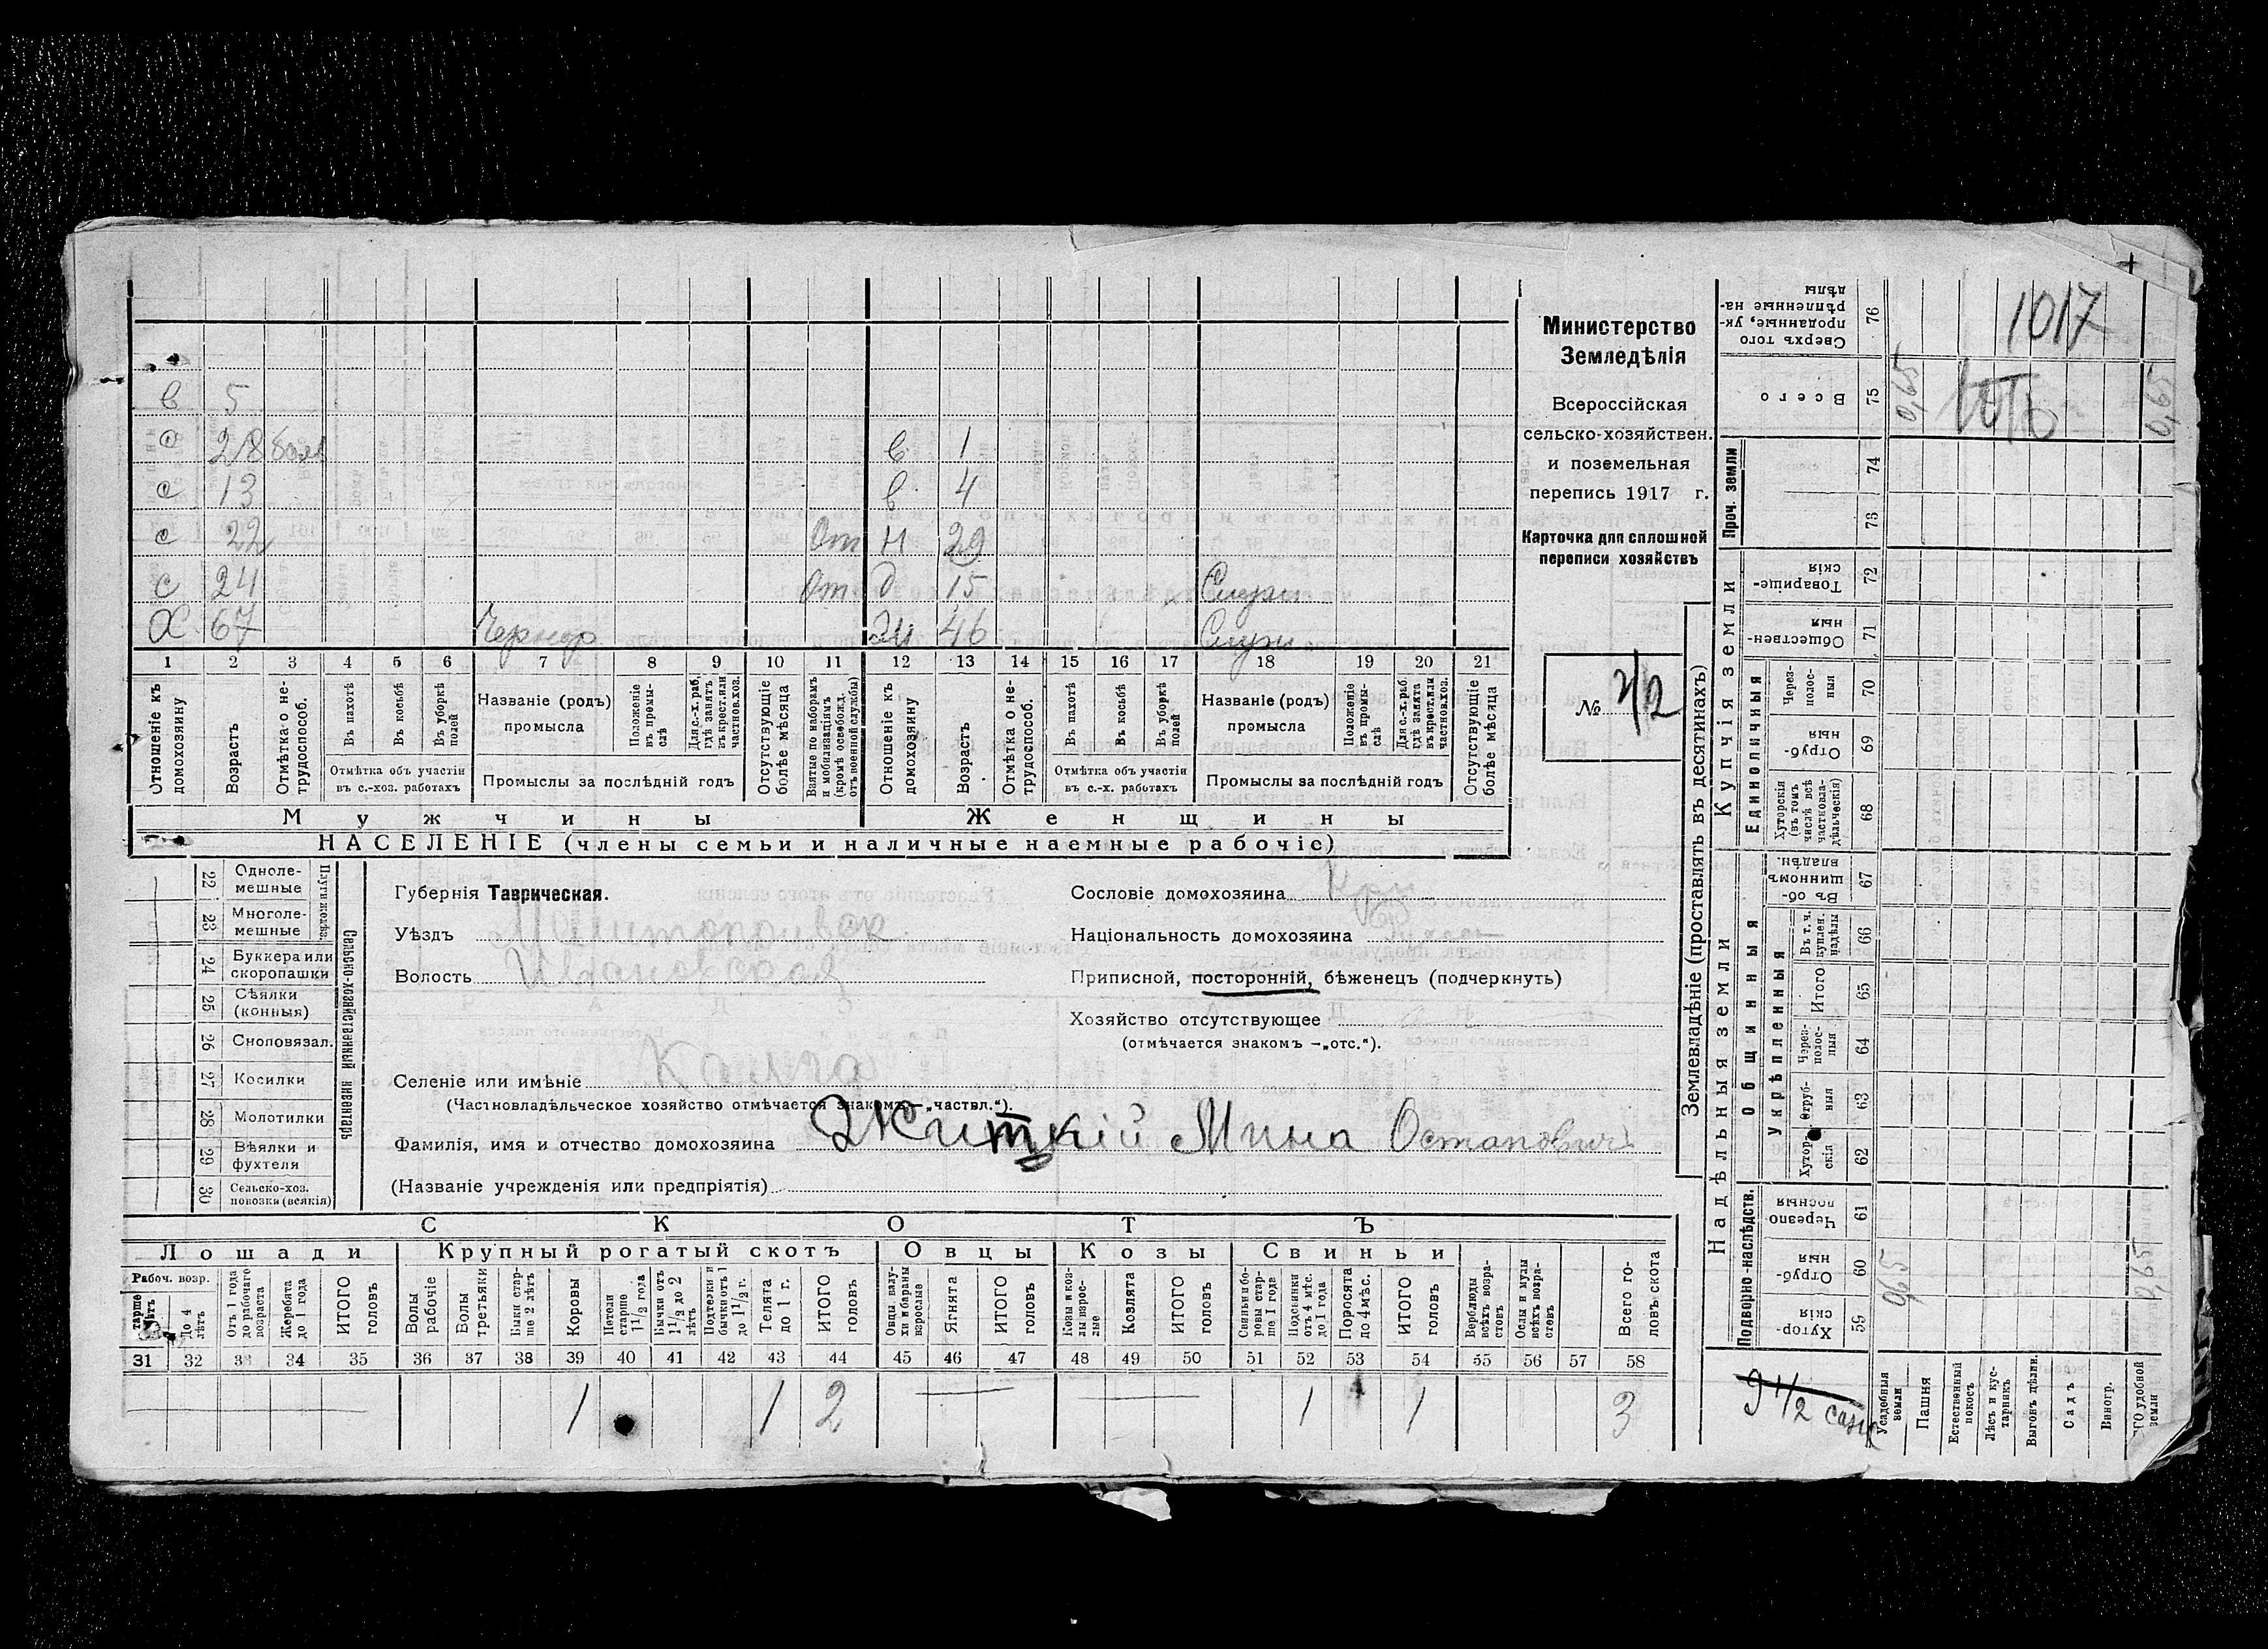 1017
в 5
с 28 бол в 1
с 13 в 4
с 22 От н 29
с 24 От д 15 Служ
Х 67 Чернор Ж 46 Служ
1 2 3 4 5 6 7 8 9 10 11 12 13 14 15 16 17 18 19 20 21
Отношеніе къ домохозяину
Возрастъ
Отмѣтка о нетрудоспособ.
Въ пахотѣ
Въ косьбѣ
Въ уборкѣ полей
Отмѣтка объ участіи
въ с.-хоз. работахъ
Названіе (родъ)
промысла
Положеніе въ промыслѣ
Для с.-х. раб., гдѣ занятъ въ крест. или частнов. хоз.
Промыслы за послѣдній годъ
Отсутствующіе болѣе мѣсяца
Взятые по наборамъ и мобилизаціямъ (кромѣ освобожд. отъ военной службы)
Отношеніе къ домохозяину
Возрастъ
Отмѣтка о нетрудоспособ.
Въ пахотѣ
Въ косьбѣ
Въ уборкѣ полей
Отмѣтка объ участіи
въ с.-х. работахъ
Названіе (родъ)
промысла
Положеніе въ промыслѣ
Для с.-х. раб. гдѣ занята въ крест. или частнов. хоз.
Промыслы за послѣдній годъ
Отсутствующіе болѣе мѣсяца
Мужчины Женщины
НАСЕЛЕНІЕ (члены семьи и наличные наемные рабочіе)
Министерство
Земледѣлія
Всероссійская
сельско-хозяйствен.
и поземельная
перепись 1917 г.
Карточка для сплошной
переписи хозяйствъ
№ 42
Сельско-хозяйственный инвентарь
Плуги желѣз.
22 Однолемешные
23 Многолемешные
24 Буккера или скоропашки
25 Сѣялки (конныя)
26 Сноповязал.
27 Косилки
28 Молотилки
29 Вѣялки и фухтеля
30 Сельско-хоз. повозки (всякія)
Губернія Таврическая.
Уѣздъ Мелитопольск.
Волость Ивановская
Селеніе или имѣніе
(Частновладѣльческое хозяйство отмѣчается знакомъ—„частвл.“).
Фамилія, имя и отчество домохозяина Житкій Мина Остапович
(Названіе учрежденія или предпріятія)
Сословіе домохозяина
Національность домохозяина
Приписной, посторонній, бѣженецъ (подчеркнуть)
Хозяйство отсутствующее
(отмѣчается знакомъ —„отс.“).
СКОТЪ
Лошади Крупный рогатый скотъ Овцы Козы Свиньи
Рабоч. возр.
До 4 лѣтъ
Отъ 1 года до рабочаго возраста
Жеребята до 1 года
ИТОГО головъ
Волы рабочіе
Волы третьяки
Быки старше 2 лѣтъ
Коровы
Нетели старше 1 1/2 года
Бычки отъ 1 1/2 до 2 лѣтъ
Подтелки и бычки отъ 1 до 1 1/2 г.
Телята до 1 г.
ИТОГО головъ
Овцы, валухи и бараны взрослые
Ягнята
ИТОГО головъ
Козы и козлы взрослые
Козлята
ИТОГО головъ
Свиньи и боровы старше 1 года
Подсвинки отъ 4 мѣс. до 1 года
Поросята до 4 мѣс.
ИТОГО головъ
Верблюды всѣхъ возрастовъ
Ослы и мулы всѣхъ возрастовъ
Всего головъ скота
31 32 33 34 35 36 37 38 39 40 41 42 43 44 45 46 47 48 49 50 51 52 53 54 55 56 57 58
1 1 2 1 1 3
Землевладѣніе (проставлять въ десятинахъ)
Надѣльныя земли Купчія земли
Проч. земли
Сверхъ того проданные, укрѣпленные надѣлы 76
Всего 75 0,65 0,65
74
73
Товарищескія 72
Общественныя 71
Единоличныя
Черезполосныя 70
Отрубныя 69
Хуторскія (въ томъ числѣ всѣ частновладѣльческія) 68
Общинныя
Въ общинномъ владѣн. 67
Укрѣпленныя
Въ т. ч. куплен. надѣлы 66
Итого 65
Черезполосныя 64
Отрубныя 63
Хуторскія 62
Подворно-наслѣдств.
Черезполосныя 61
Отрубныя 60 0,65 0,65
Хуторскія 59
Усадебныя земли
Пашня
Естественный покосъ
Лѣсъ и кустарникъ
Выгонъ дѣлим.
Садъ
Виногр.
удобной земли